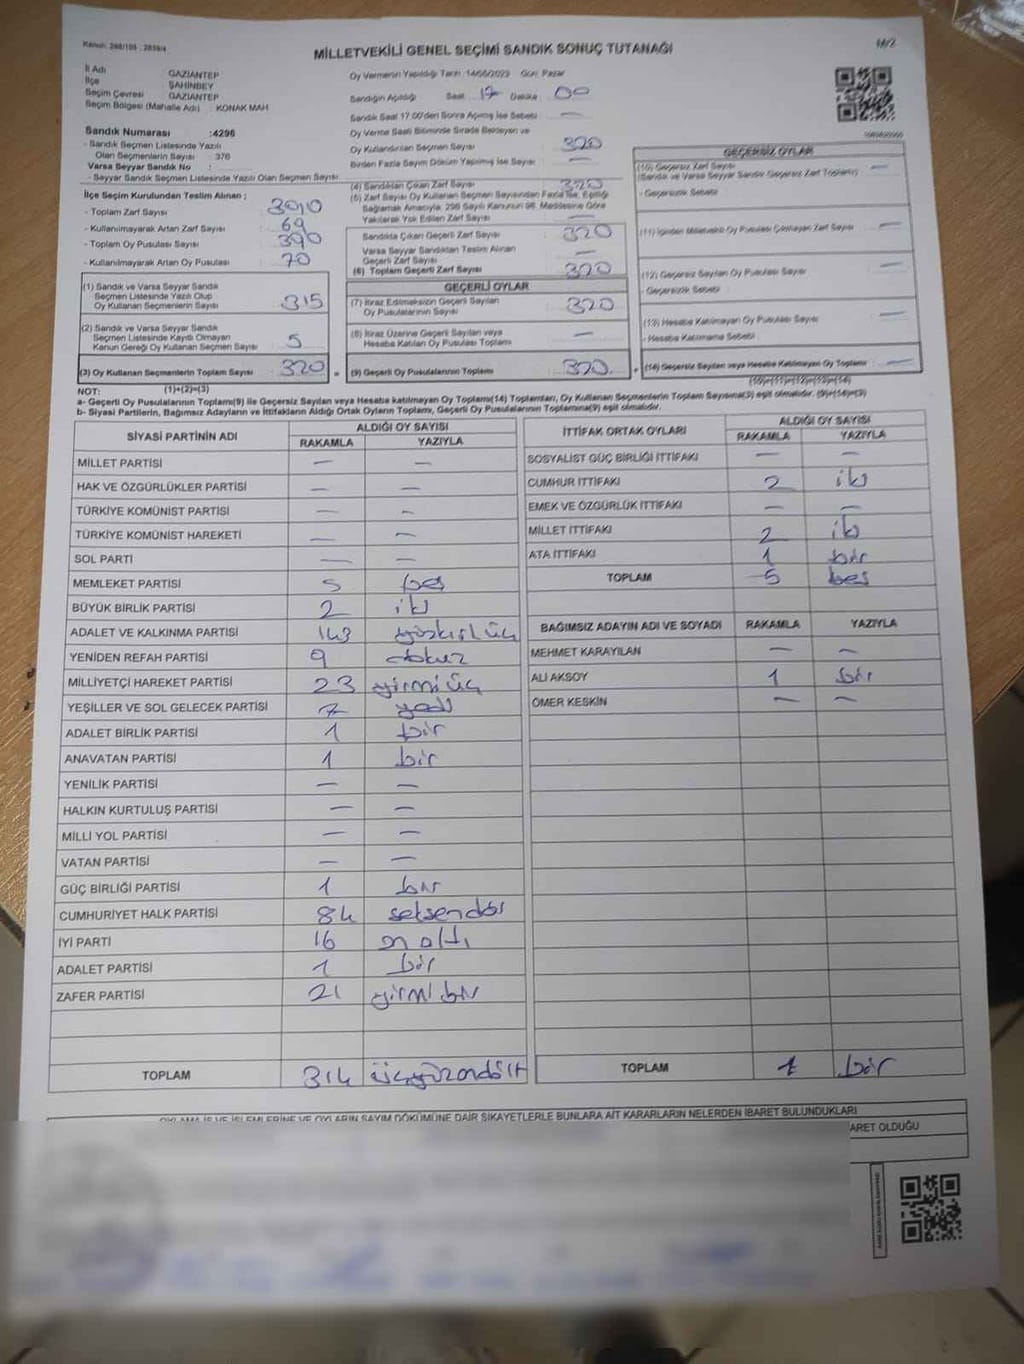 Kanun: 298/105 : 2839/4
MİLLETVEKİLİ GENEL SEÇİMİ SANDIK SONUÇ TUTANAĞI
M/2
İl Adı GAZİANTEP
İlçe ŞAHİNBEY
Seçim Çevresi GAZİANTEP
Seçim Bölgesi (Mahalle Adı) : KONAK MAH
Sandık Numarası :4296
- Sandık Seçmen Listesinde Yazılı
Olan Seçmenlerin Sayısı : 376
Varsa Seyyar Sandık No :
- Seyyar Sandık Seçmen Listesinde Yazılı Olan Seçmen Sayısı:
Oy Vermenin Yapıldığı Tarih :14/05/2023 Gün: Pazar
Sandığın Açıldığı Saat 17 Dakika 00
Sandık Saat 17.00'den Sonra Açılmış İse Sebebi : —
Oy Verme Saati Bitiminde Sırada Bekleyen ve
Oy Kullandırılan Seçmen Sayısı : 320
Birden Fazla Sayım Döküm Yapılmış İse Sayısı : —
İlçe Seçim Kurulundan Teslim Alınan ;
- Toplam Zarf Sayısı : 390
- Kullanılmayarak Artan Zarf Sayısı : 69
- Toplam Oy Pusulası Sayısı : 390
- Kullanılmayarak Artan Oy Pusulası : 70
(1) Sandık ve Varsa Seyyar Sandık
Seçmen Listesinde Yazılı Olup
Oy Kullanan Seçmenlerin Sayısı 315
(2) Sandık ve Varsa Seyyar Sandık
Seçmen Listesinde Kayıtlı Olmayan
Kanun Gereği Oy Kullanan Seçmen Sayısı 5
(3) Oy Kullanan Seçmenlerin Toplam Sayısı 320
(1)+(2)=(3)
(4) Sandıktan Çıkan Zarf Sayısı : 320
(5) Zarf Sayısı Oy Kullanan Seçmen Sayısından Fazla İse, Eşitliği
Sağlamak Amacıyla, 298 Sayılı Kanunun 98. Maddesine Göre
Yakılarak Yok Edilen Zarf Sayısı : —
Sandıkta Çıkan Geçerli Zarf Sayısı 320
Varsa Seyyar Sandıktan Teslim Alınan
Geçerli Zarf Sayısı —
(6) Toplam Geçerli Zarf Sayısı 320
GEÇERLİ OYLAR
(7) İtiraz Edilmeksizin Geçerli Sayılan
Oy Pusulalarının Sayısı 320
(8) İtiraz Üzerine Geçerli Sayılan veya
Hesaba Katılan Oy Pusulası Toplamı —
= (9) Geçerli Oy Pusulalarının Toplamı 320
GEÇERSİZ OYLAR
(10) Geçersiz Zarf Sayısı
(Sandık ve Varsa Seyyar Sandık Geçersiz Zarf Toplamı) —
- Geçersizlik Sebebi :
(11) İçinden Milletvekili Oy Pusulası Çıkmayan Zarf Sayısı —
(12) Geçersiz Sayılan Oy Pusulası Sayısı —
- Geçersizlik Sebebi :
(13) Hesaba Katılmayan Oy Pusulası Sayısı —
- Hesaba Katılmama Sebebi :
+ (14) Geçersiz Sayılan veya Hesaba Katılmayan Oy Toplamı —
(10)+(11)+(12)+(13)=(14)
NOT:
a- Geçerli Oy Pusulaları Toplamı(9) ile Geçersiz Sayılan veya Hesaba katılmayan Oy Toplamı(14) Toplamları, Oy Kullanan Seçmenlerin Toplam Sayısına(3) eşit olmalıdır. (9)+(14)=(3)
b- Siyasi Partilerin, Bağımsız Adayların ve İttifakların Aldığı Ortak Oyların Toplamı, Geçerli Oy Pusulalarının Toplamına(9) eşit olmalıdır.
SİYASİ PARTİNİN ADI ALDIĞI OY SAYISI
RAKAMLA YAZIYLA
MİLLET PARTİSİ — —
HAK VE ÖZGÜRLÜKLER PARTİSİ — —
TÜRKİYE KOMÜNİST PARTİSİ — —
TÜRKİYE KOMÜNİST HAREKETİ — —
SOL PARTİ — —
MEMLEKET PARTİSİ 5 beş
BÜYÜK BİRLİK PARTİSİ 2 iki
ADALET VE KALKINMA PARTİSİ 143 yüzkırküç
YENİDEN REFAH PARTİSİ 9 dokuz
MİLLİYETÇİ HAREKET PARTİSİ 23 yirmi üç
YEŞİLLER VE SOL GELECEK PARTİSİ 7 yedi
ADALET BİRLİK PARTİSİ 1 bir
ANAVATAN PARTİSİ 1 bir
YENİLİK PARTİSİ — —
HALKIN KURTULUŞ PARTİSİ — —
MİLLİ YOL PARTİSİ — —
VATAN PARTİSİ — —
GÜÇ BİRLİĞİ PARTİSİ 1 bir
CUMHURİYET HALK PARTİSİ 84 seksendört
İYİ PARTİ 16 on altı
ADALET PARTİSİ 1 bir
ZAFER PARTİSİ 21 yirmi bir
TOPLAM 314 üçyüzondört
İTTİFAK ORTAK OYLARI ALDIĞI OY SAYISI
RAKAMLA YAZIYLA
SOSYALİST GÜÇ BİRLİĞİ İTTİFAKI — —
CUMHUR İTTİFAKI 2 iki
EMEK VE ÖZGÜRLÜK İTTİFAKI — —
MİLLET İTTİFAKI 2 iki
ATA İTTİFAKI 1 bir
TOPLAM 5 beş
BAĞIMSIZ ADAYIN ADI VE SOYADI RAKAMLA YAZIYLA
MEHMET KARAYILAN — —
ALİ AKSOY 1 bir
ÖMER KESKİN — —
TOPLAM 1 bir
OYLAMA İŞ VE İŞLEMLERİNE VE OYLARIN SAYIM DÖKÜMÜNE DAİR ŞİKAYETLERLE BUNLARA AİT KARARLARIN NELERDEN İBARET BULUNDUKLARI
ARET OLDUĞU